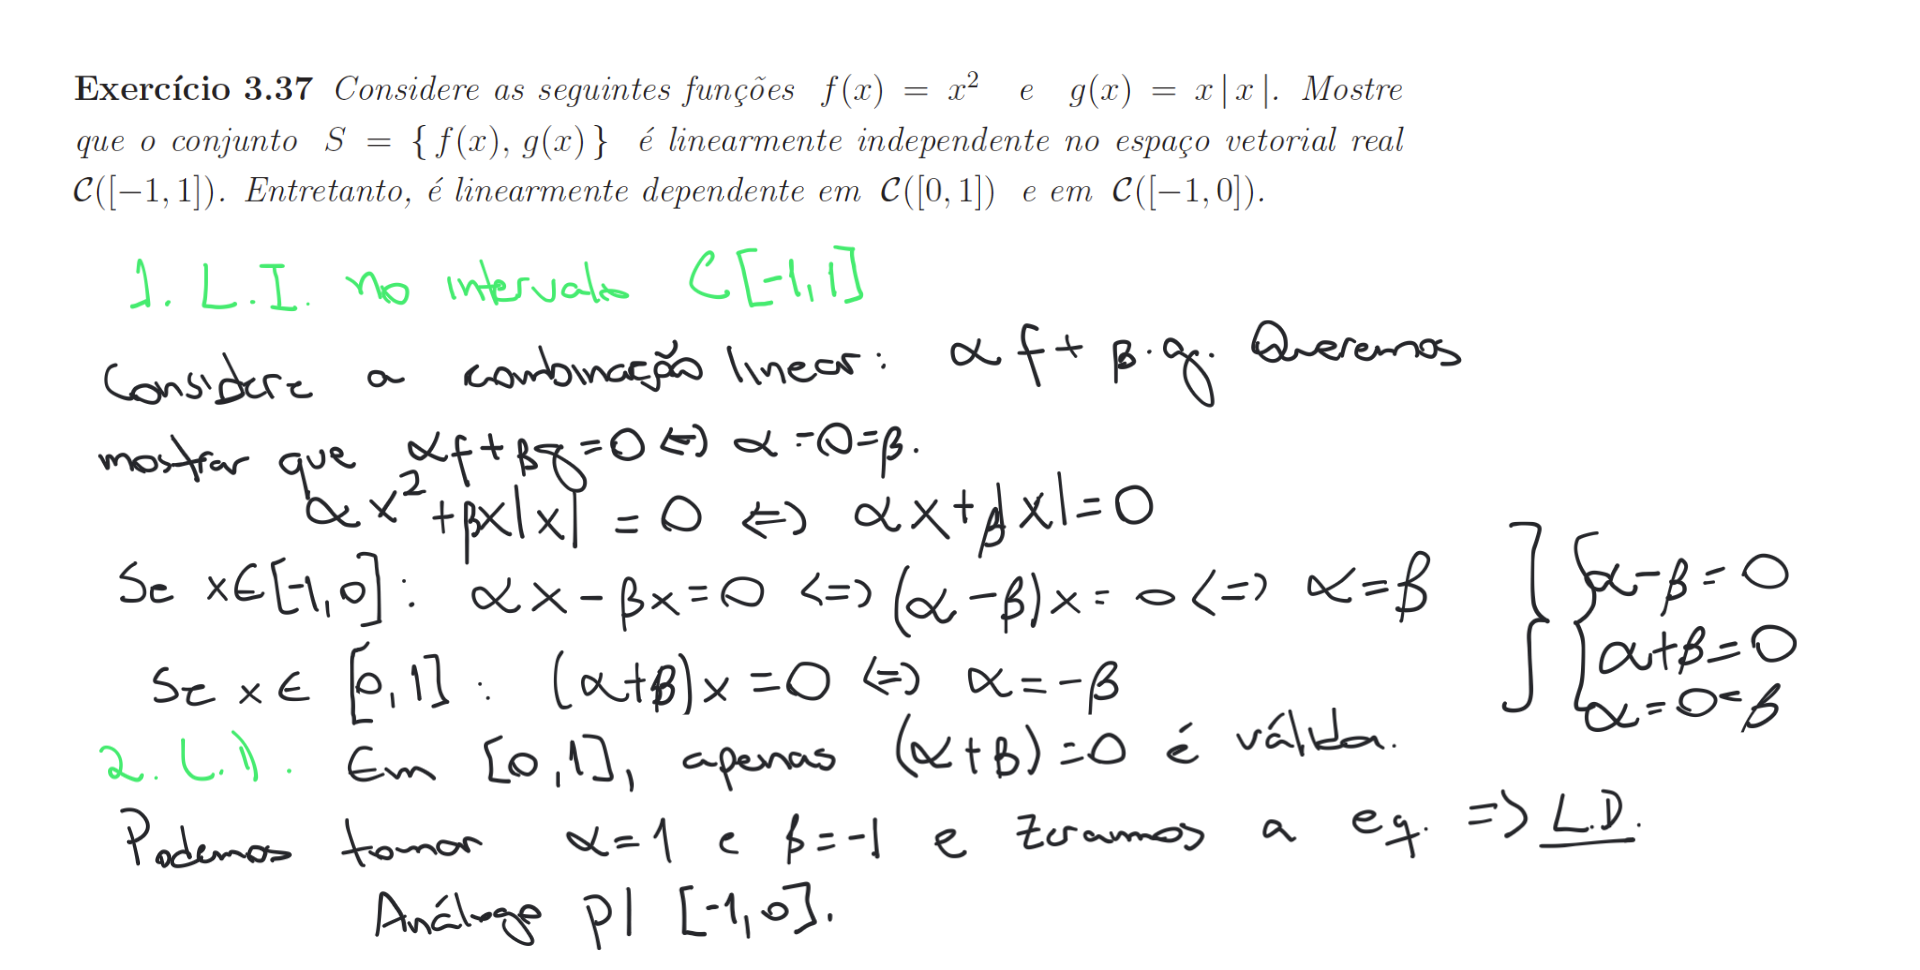 Exercício 3.37 Considere as seguintes funções f(x) = x² e g(x) = x|x|. Mostre
que o conjunto S = {f(x), g(x)} é linearmente independente no espaço vetorial real
C([−1, 1]). Entretanto, é linearmente dependente em C([0, 1]) e em C([−1, 0]).
1. L.I. no intervalo C[-1,1]
Considere a combinação linear: αf + β·g. Queremos
mostrar que αf+βg=0 <=> α=0=β.
αx²+βx|x| = 0 <=> αx+β|x|=0
Se x∈[-1,0]: αx-βx=0 <=> (α-β)x=0 <=> α=β
Se x∈[0,1]: (α+β)x=0 <=> α=-β
] { α-β=0
α+β=0
α=0=β
2. L.D. Em [0,1], apenas (α+β)=0 é válida.
Podemos tomar α=1 e β=-1 e zeramos a eq. => L.D.
Análogo p| [-1,0].